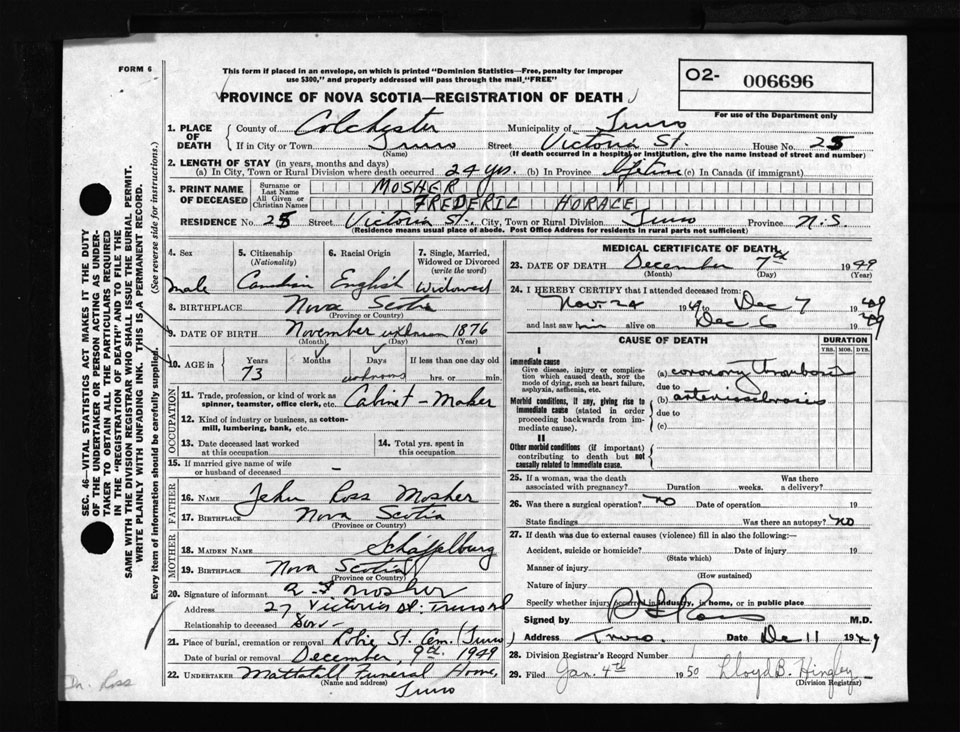 FORM 6
This form if placed in an envelope, on which is printed "Dominion Statistics—Free, penalty for improper
use $300," and properly addressed will pass through the mail "FREE"
O2- 006696
PROVINCE OF NOVA SCOTIA—REGISTRATION OF DEATH
For use of the Department only
1. PLACE OF DEATH County of Colchester Municipality of Truro
If in City or Town Truro (Name) Street Victoria St. House No. 25
(If death occurred in a hospital or institution, give the name instead of street and number)
2. LENGTH OF STAY (in years, months and days)
(a) In City, Town or Rural Division where death occurred 24 yrs. (b) In Province lifetime (c) In Canada (if immigrant)
3. PRINT NAME OF DECEASED Surname or Last Name MOSHER
All Given or Christian Names FREDERIC HORACE
RESIDENCE No. 25 Street Victoria St. City, Town or Rural Division Truro Province N.S.
(Residence means usual place of abode. Post Office Address for residents in rural parts not sufficient)
4. Sex male
5. Citizenship (Nationality) Canadian
6. Racial Origin English
7. Single, Married, Widowed or Divorced (write the word) Widowed
8. BIRTHPLACE Nova Scotia
(Province or Country)
9. DATE OF BIRTH November unknown 1876
(Month) (Day) (Year)
10. AGE in Years 73 Months Days unknown If less than one day old hrs. or min.
OCCUPATION
11. Trade, profession, or kind of work as spinner, teamster, office clerk, etc. Cabinet-Maker
12. Kind of industry or business, as cotton-mill, lumbering, bank, etc.
13. Date deceased last worked at this occupation
14. Total yrs. spent in this occupation
15. If married give name of wife or husband of deceased —
FATHER
16. NAME John Ross Mosher
17. BIRTHPLACE Nova Scotia
(Province or Country)
MOTHER
18. MAIDEN NAME Schaffelburg
19. BIRTHPLACE Nova Scotia
(Province or Country)
20. Signature of informant Mosher
Address 27 Victoria St. Truro
Relationship to deceased Son -
21. Place of burial, cremation or removal Robie St. Cem. (Truro)
Date of burial or removal December, 9th. 1949
22. UNDERTAKER Mattatall Funeral Home,
(Name and address) Truro
MEDICAL CERTIFICATE OF DEATH
23. DATE OF DEATH December 7th 1949
(Month) (Day) (Year)
24. I HEREBY CERTIFY that I attended deceased from:
Nov. 24 1949 to Dec 7 1949
and last saw him alive on Dec 6 1949
CAUSE OF DEATH
DURATION
YRS. MOS. DYS.
I
Immediate cause
Give disease, injury or complication which caused death, not the mode of dying, such as heart failure, asphyxia, asthenia, etc.
(a) coronary thrombosis
due to
Morbid conditions, if any, giving rise to immediate cause (stated in order proceeding backwards from immediate cause).
(b) arteriosclerosis
due to
(c)
II
Other morbid conditions (if important) contributing to death but not causally related to immediate cause.
25. If a woman, was the death associated with pregnancy? Duration weeks. Was there a delivery?
26. Was there a surgical operation? no Date of operation 19
State findings Was there an autopsy? no
27. If death was due to external causes (violence) fill in also the following:
Accident, suicide or homicide? Date of injury 19
(State which)
Manner of injury
(How sustained)
Nature of injury
Specify whether injury occurred in industry, in home, or in public place
Signed by Ross M.D.
Address Truro. Date Dec 11 1949
28. Division Registrar's Record Number
29. Filed Jan. 4th 1950 Lloyd B. Hingley
(Division Registrar)
SEC. 46—VITAL STATISTICS ACT MAKES IT THE DUTY
OF THE UNDERTAKER OR PERSON ACTING AS UNDER-
TAKER TO OBTAIN ALL THE PARTICULARS REQUIRED
IN THE "REGISTRATION OF DEATH" AND TO FILE THE
SAME WITH THE DIVISION REGISTRAR WHO SHALL ISSUE THE BURIAL PERMIT.
WRITE PLAINLY WITH UNFADING INK. THIS IS A PERMANENT RECORD.
Every item of information should be carefully supplied. (See reverse side for instructions.)
Dr. Ross